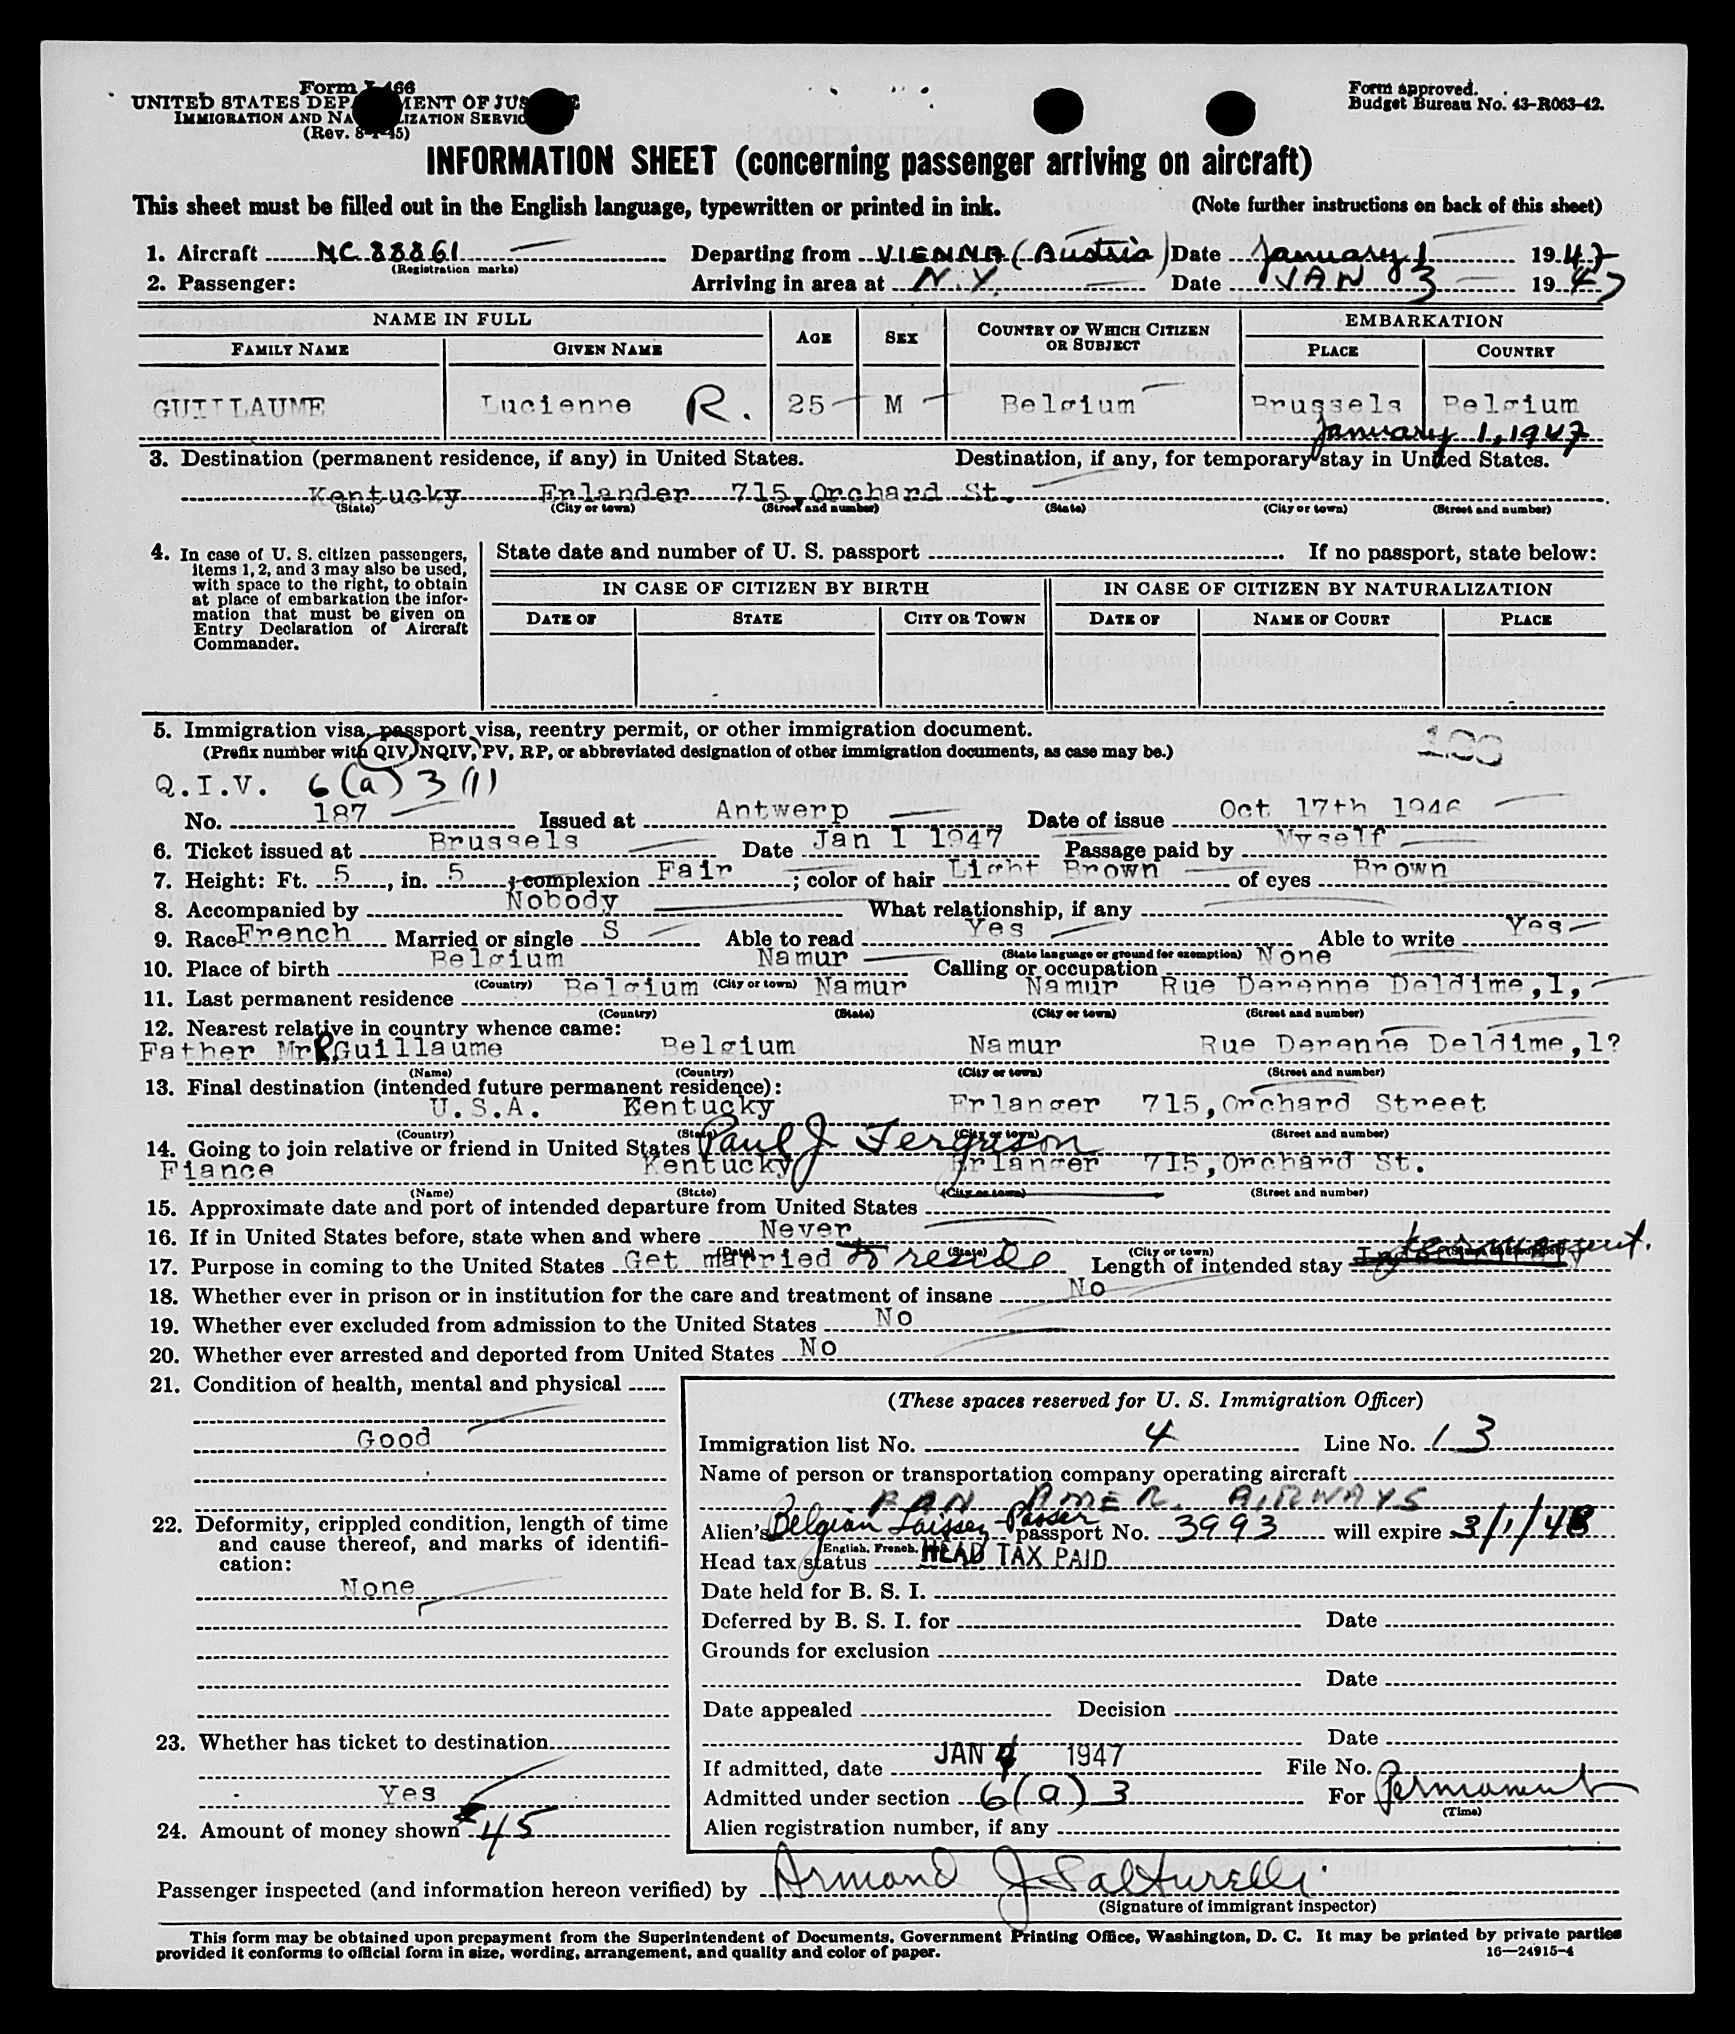 Form I-466
UNITED STATES DEPARTMENT OF JUSTICE
IMMIGRATION AND NATURALIZATION SERVICE
(Rev. 8-1-45)
Form approved.
Budget Bureau No. 43-R063-42.
INFORMATION SHEET (concerning passenger arriving on aircraft)
This sheet must be filled out in the English language, typewritten or printed in ink. (Note further instructions on back of this sheet)
1. Aircraft NC 88861 Departing from VIENNA (Austria) Date January 1 1947
(Registration marks)
2. Passenger: Arriving in area at N.Y. Date JAN 3 1947
NAME IN FULL AGE SEX COUNTRY OF WHICH CITIZEN OR SUBJECT EMBARKATION
FAMILY NAME GIVEN NAME PLACE COUNTRY
GUILLAUME Lucienne R. 25 M Belgium Brussels Belgium
January 1, 1947
3. Destination (permanent residence, if any) in United States. Destination, if any, for temporary stay in United States.
Kentucky Erlander 715, Orchard St.
(State) (City or town) (Street and number) (State) (City or town) (Street and number)
4. In case of U. S. citizen passengers,
items 1, 2, and 3 may also be used,
with space to the right, to obtain
at place of embarkation the infor-
mation that must be given on
Entry Declaration of Aircraft
Commander.
State date and number of U. S. passport If no passport, state below:
IN CASE OF CITIZEN BY BIRTH IN CASE OF CITIZEN BY NATURALIZATION
DATE OF STATE CITY OR TOWN DATE OF NAME OF COURT PLACE
5. Immigration visa, passport visa, reentry permit, or other immigration document.
(Prefix number with QIV, NQIV, PV, RP, or abbreviated designation of other immigration documents, as case may be.)
Q.I.V. 6(a) 3 (1)
No. 187 Issued at Antwerp Date of issue Oct 17th 1946
6. Ticket issued at Brussels Date Jan I 1947 Passage paid by Myself
7. Height: Ft. 5, in. 5; complexion Fair; color of hair Light Brown of eyes Brown
8. Accompanied by Nobody What relationship, if any
9. Race French Married or single S Able to read Yes Able to write Yes
(State language or ground for exemption)
10. Place of birth Belgium Namur Calling or occupation None
(Country) (City or town)
11. Last permanent residence Belgium Namur Namur Rue Derenne Deldime, 1,
(Country) (State) (City or town) (Street and number)
12. Nearest relative in country whence came:
Father Mr R Guillaume Belgium Namur Rue Derenne Deldime, 1?
(Name) (Country) (City or town) (Street and number)
13. Final destination (intended future permanent residence):
U.S.A. Kentucky Erlanger 715, Orchard Street
(Country) (State) (City or town) (Street and number)
14. Going to join relative or friend in United States Paul J. Ferguson
Fiance Kentucky Erlanger 7I5, Orchard St.
(Name) (State) (City or town) (Street and number)
15. Approximate date and port of intended departure from United States
16. If in United States before, state when and where Never
(Date) (State) (City or town)
17. Purpose in coming to the United States Get married to reside Length of intended stay permanent.
18. Whether ever in prison or in institution for the care and treatment of insane No
19. Whether ever excluded from admission to the United States No
20. Whether ever arrested and deported from United States No
21. Condition of health, mental and physical
Good
22. Deformity, crippled condition, length of time
and cause thereof, and marks of identifi-
cation:
None
23. Whether has ticket to destination
Yes
24. Amount of money shown 45
(These spaces reserved for U. S. Immigration Officer)
Immigration list No. 4 Line No. 13
Name of person or transportation company operating aircraft
PAN AMER. AIRWAYS
Alien's Belgian Laissez-Passer passport No. 3993 will expire 3/1/48
(English, French,
Head tax status HEAD TAX PAID
Date held for B. S. I.
Deferred by B. S. I. for Date
Grounds for exclusion
Date
Date appealed Decision
Date
If admitted, date JAN 4 1947 File No.
Admitted under section 6(a)3 For Permanent
(Time)
Alien registration number, if any
Passenger inspected (and information hereon verified) by Armand J. Salturelli
(Signature of immigrant inspector)
This form may be obtained upon prepayment from the Superintendent of Documents, Government Printing Office, Washington, D. C. It may be printed by private parties
provided it conforms to official form in size, wording, arrangement, and quality and color of paper. 16—24915-4